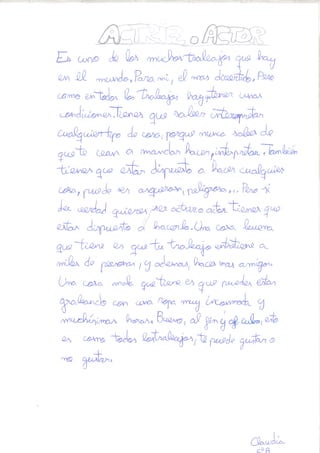 ACTRIZ o ACTOR
Es uno de los muchos trabajos que hay
en el mundo. Para mi, el mas divertido. Pero
como en todos los trabajos hay tener unas
condiciones. Tienes que saber interpretar
cualquier tipo de cosa, porque nunca sabes de
que te vean a mandar hacer, interpretar. También
tienes que estar dispuesto a hacer cualquier
cosa, puede ser asquerosa, peligrosa... Pero si
de verdad quieres ser actriz o actor tienes que
estar dispuesto a hacerlo. Una cosa buena
que tiene es que tu trabajo entretiene a
miles de personas, y ademas, haces mas amigos.
Una cosa mala que tiene es que puedes estar
grabando con una ropa muy incomoda y
muchísimas horas. Bueno, al fin y al cabo, esto
es como todos los trabajos, te puede gustar o
no gustar.
Claudia
6ºA